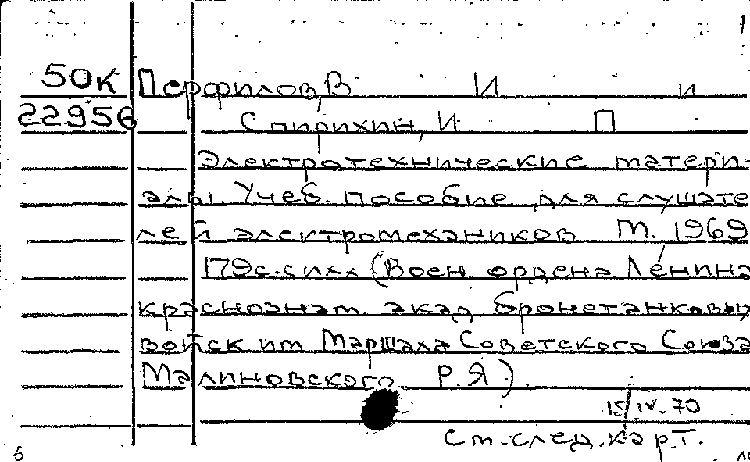 50к Перфилов, В И и
22956 Спирихин, И П
Электротехнические матери-
алы Учеб. пособие для слушате
лей электромехаников М. 1969
179с. с илл (Воен ордена Ленина
краснознам. акад бронетанковых
войск им Маршала Советского Союза
Малиновского Р.Я.)
15/IV-70
См. след. карт.